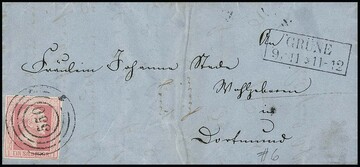 An
GRÜNE
9. 11 * 11-12
Fräulein Johanne Stede
Wohlgeboren
in
Dortmund
550
#6